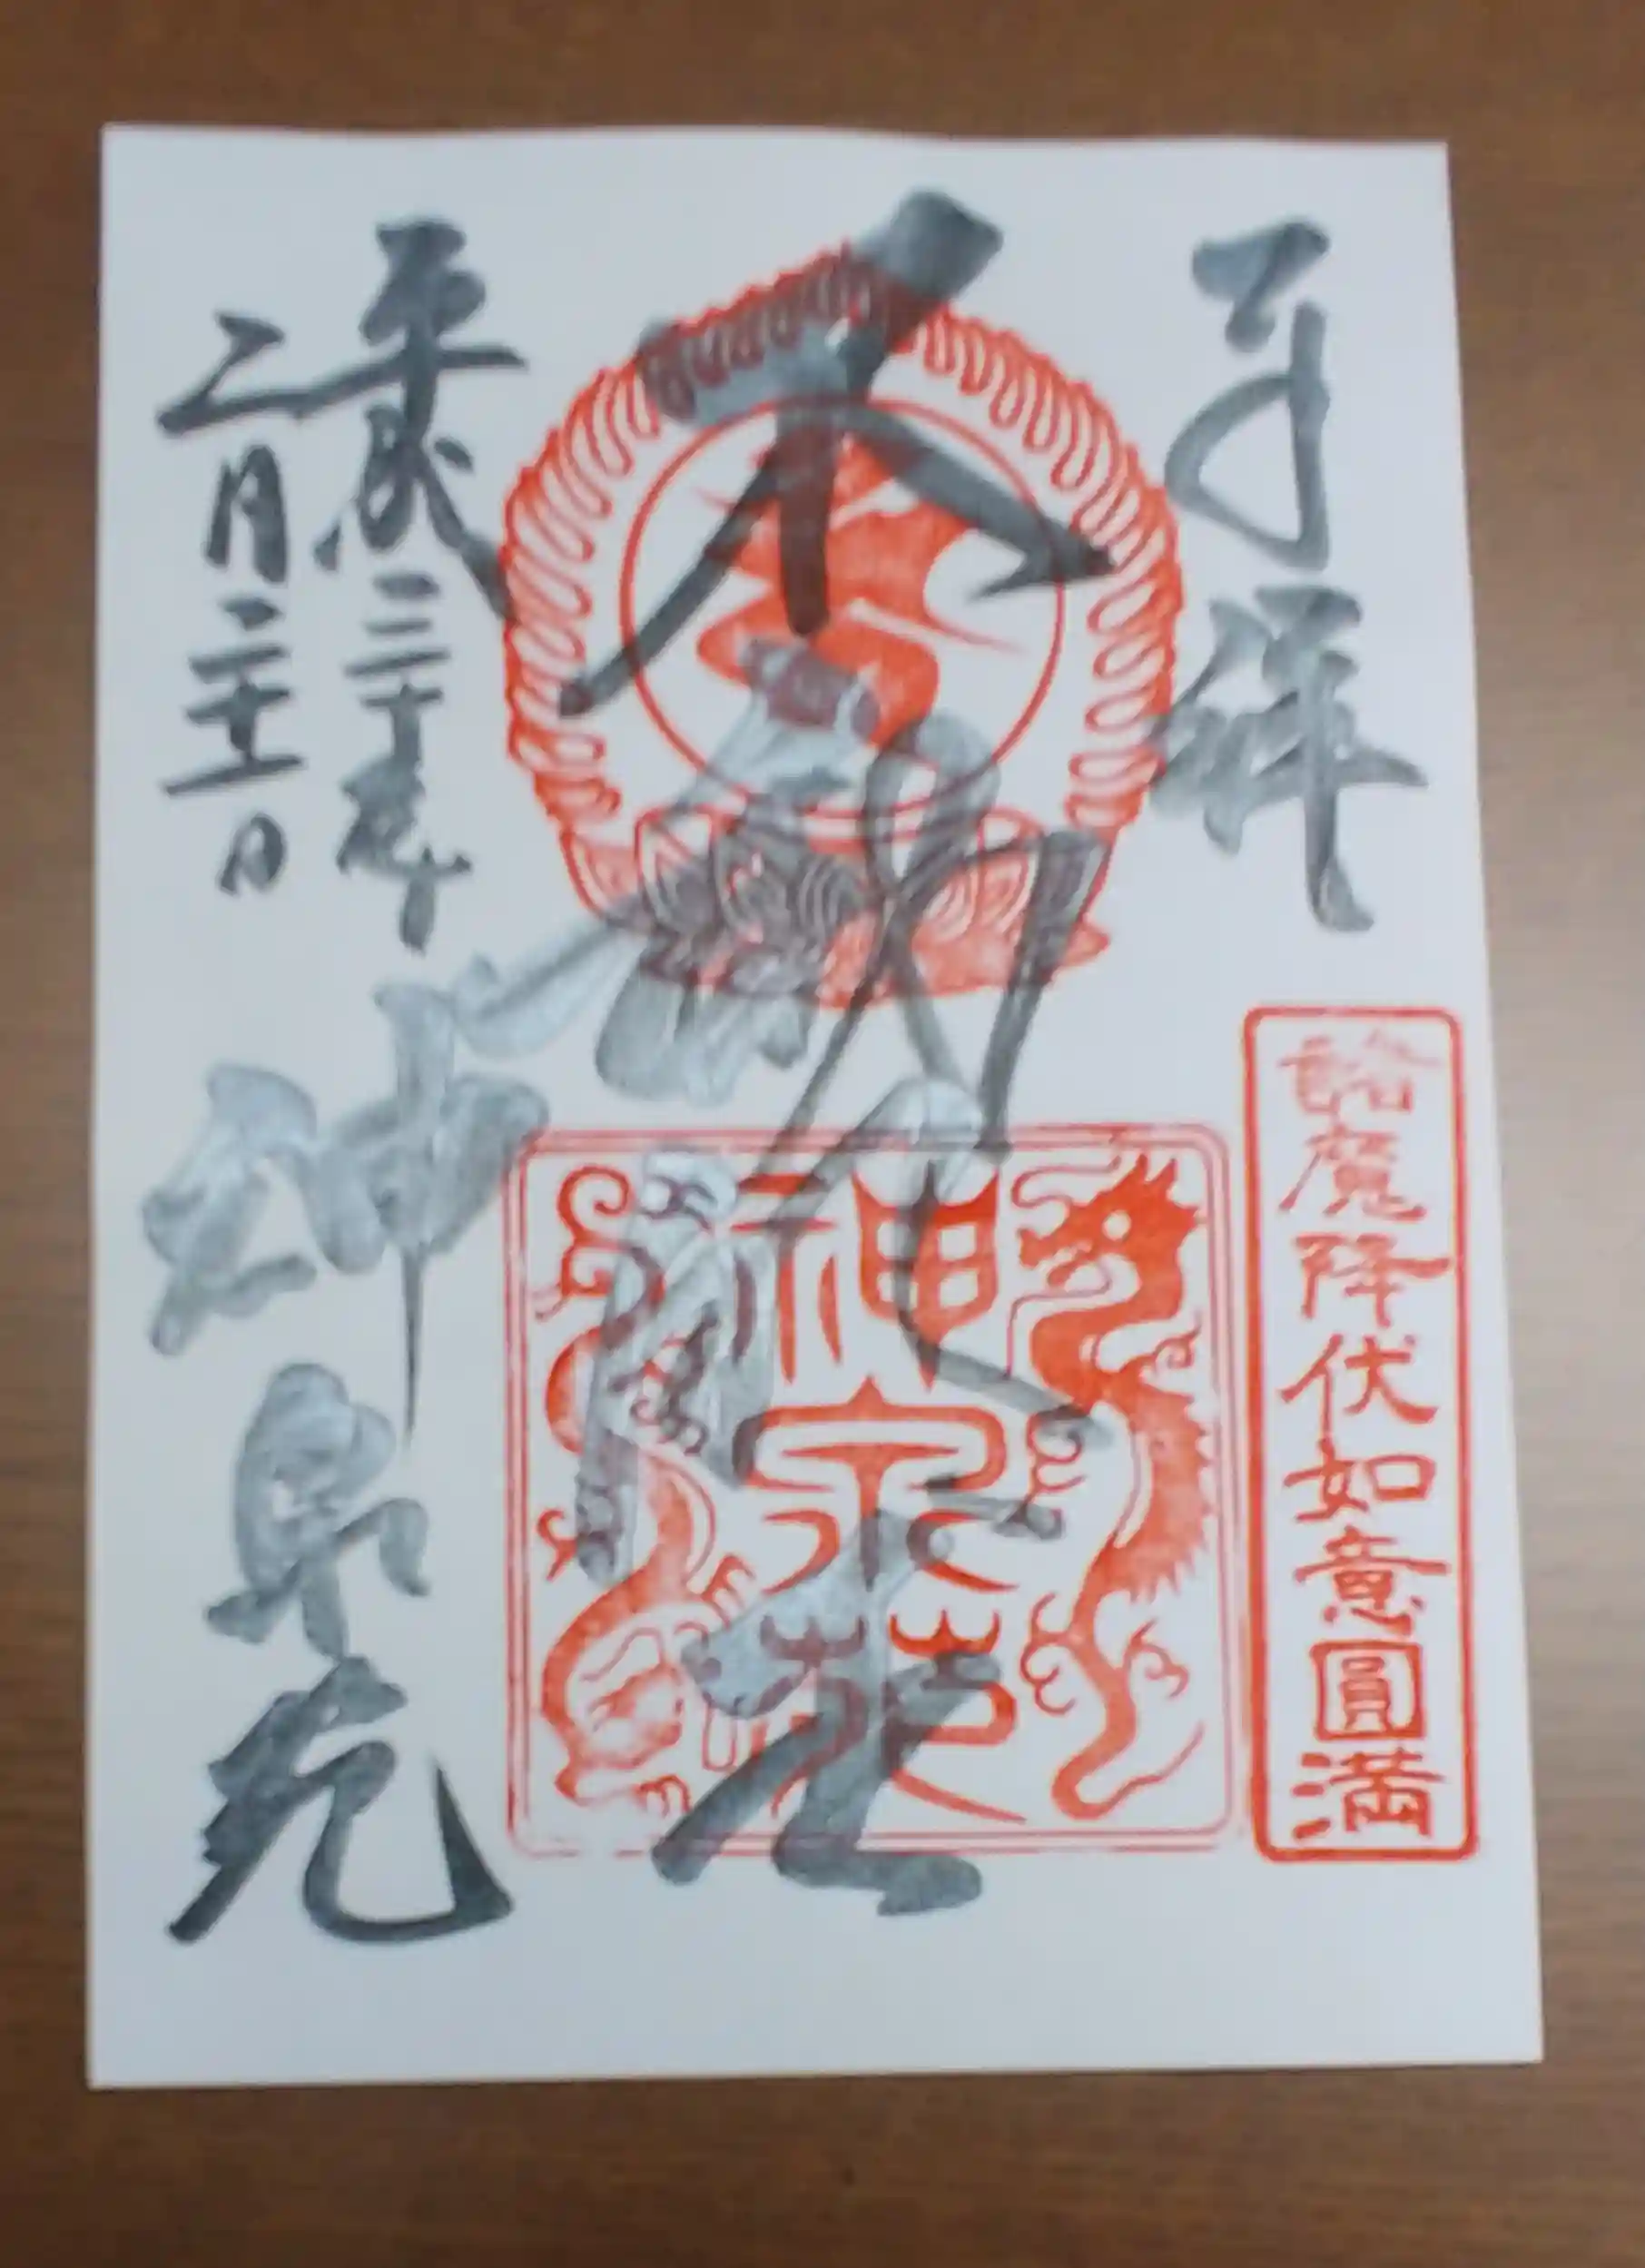 奉拝
諸魔降伏如意圓満
不動明王
神泉苑
平成三十年
二月二十一日
神泉苑